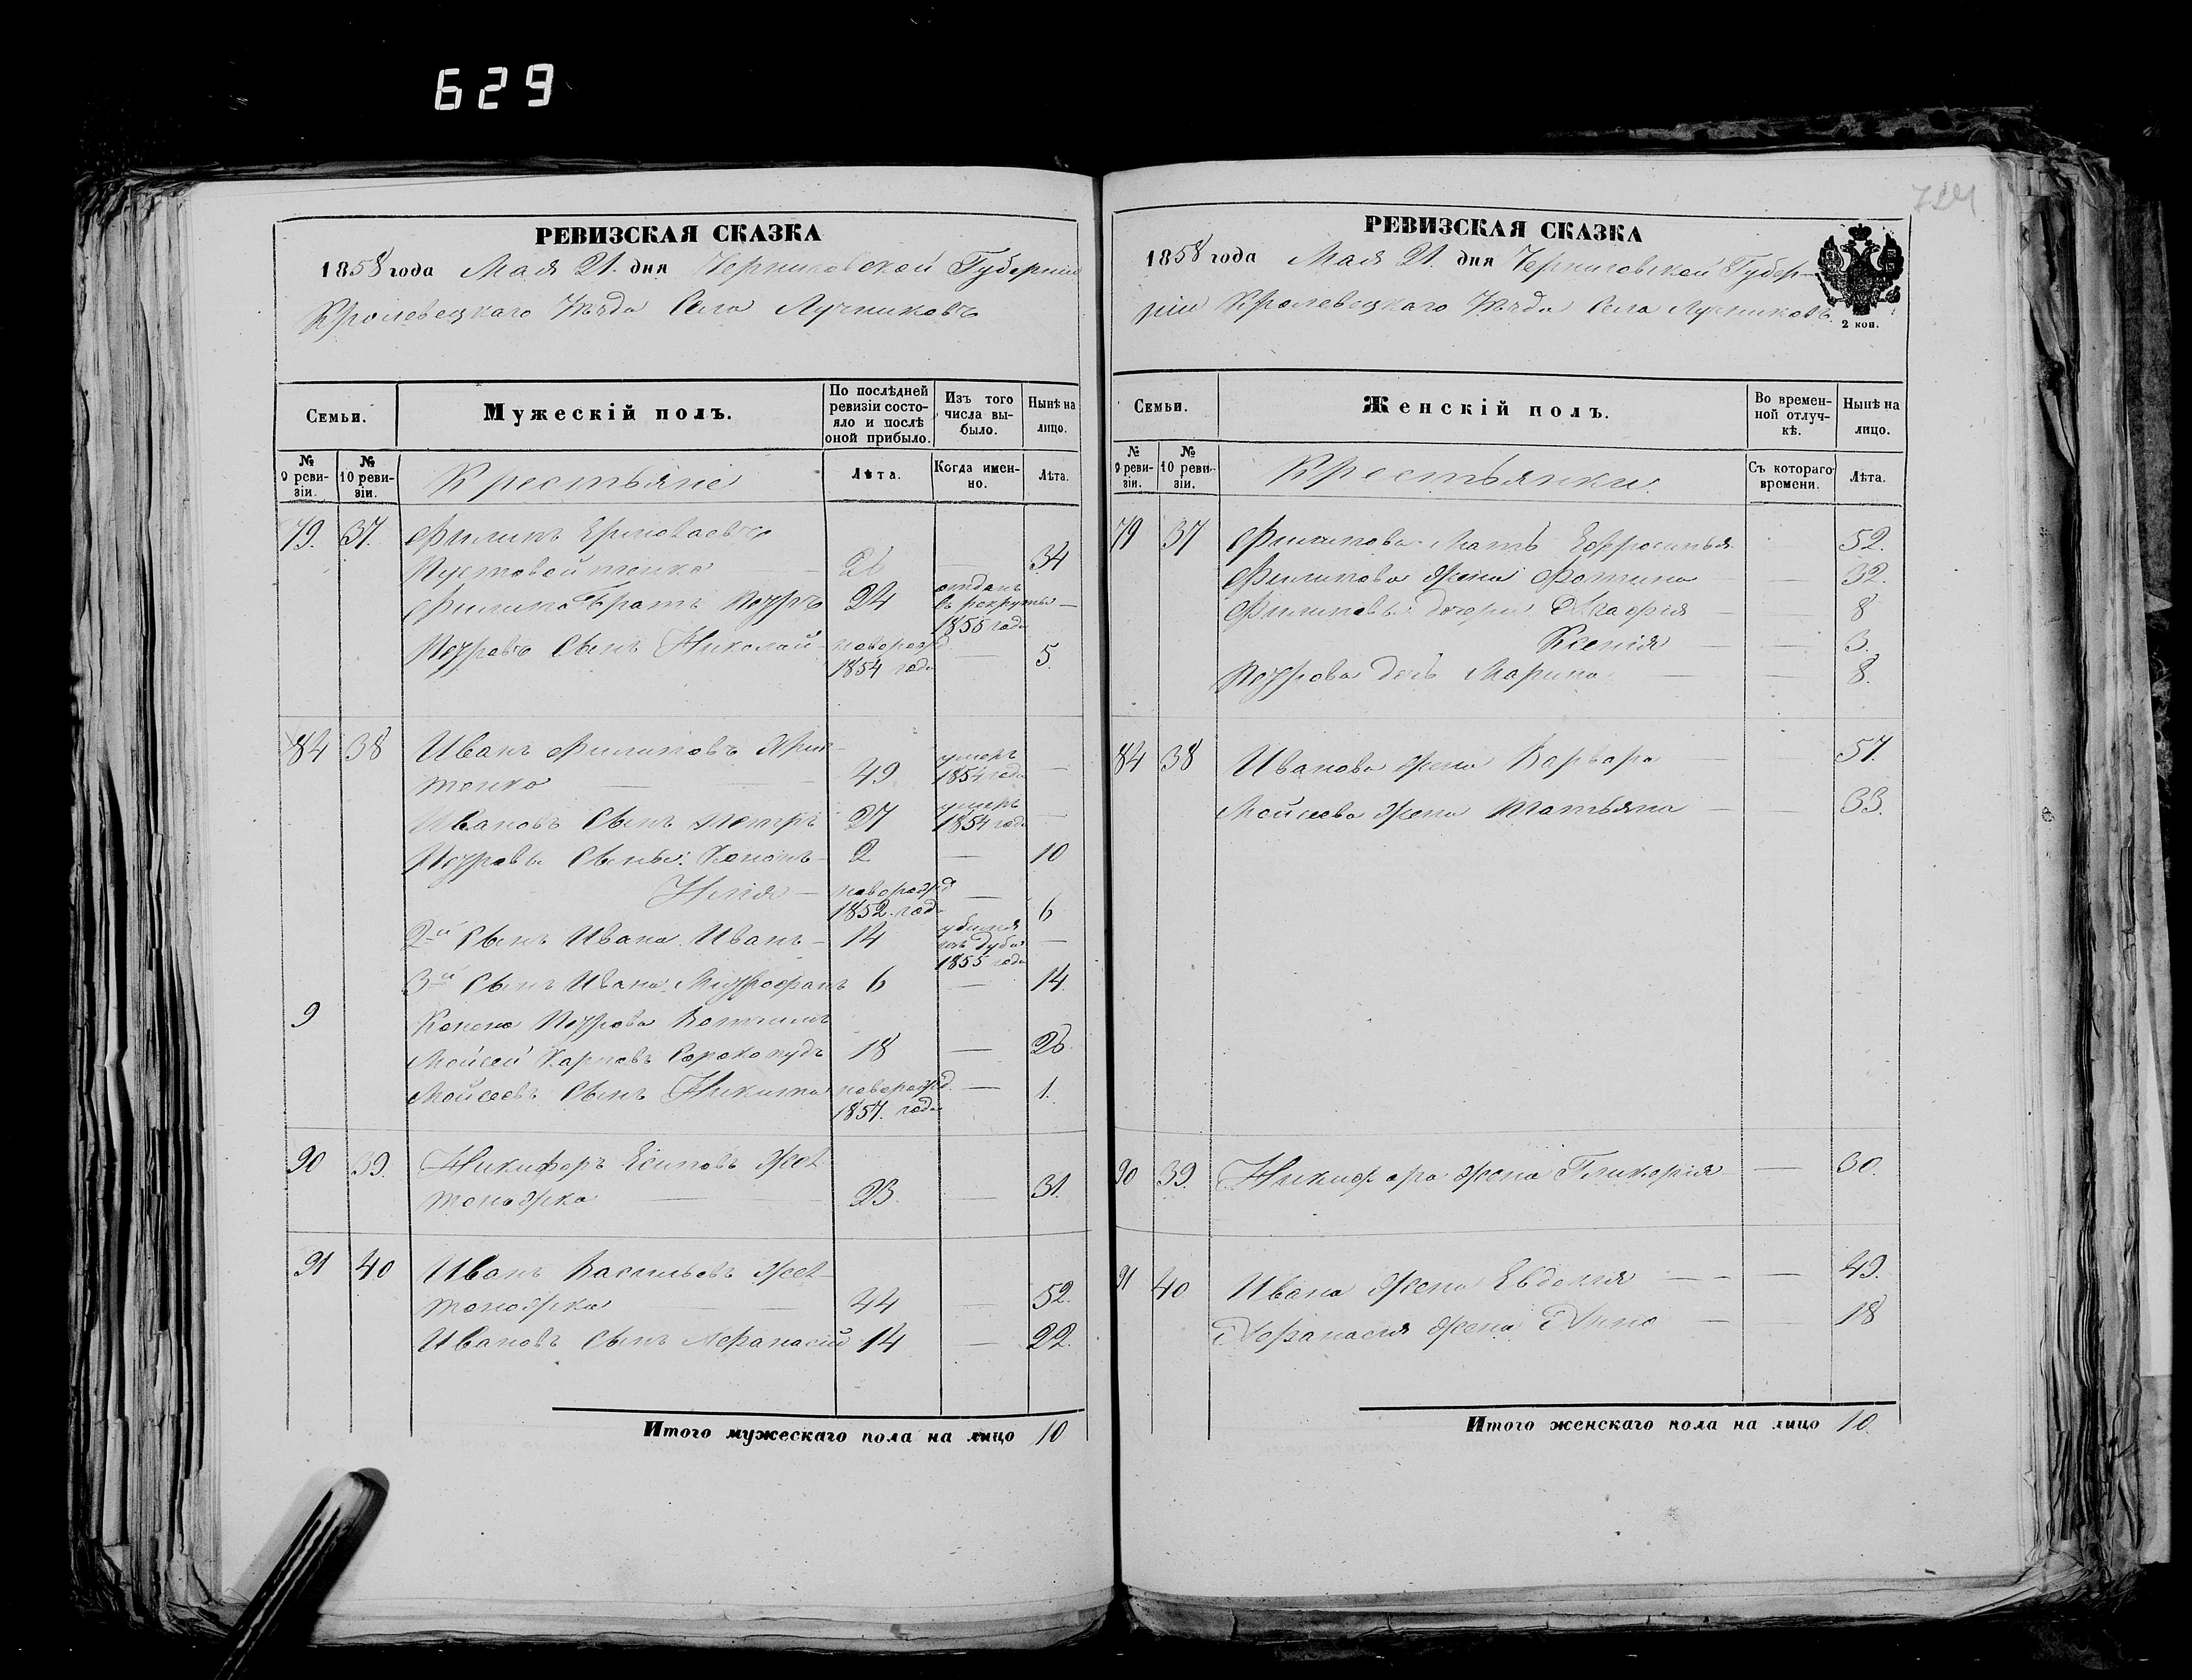 629
724
РЕВИЗСКАЯ СКАЗКА
1858 года Мая 21. дня Черниговской Губернии
Кролевецкаго Уѣзда Села Лучниковъ
Семьи.
Мужескій полъ.
По послѣдней ревизіи состояло и послѣ оной прибыло.
Изъ того числа выбыло.
Нынѣ на лицо.
№ 9 ревизіи.
№ 10 ревизіи.
Крестьяне
Лѣта.
Когда именно.
Лѣта.
79. 37. Филипъ
Пустовойтенко 26 — 34
Филипа Братъ Петръ 24 отданъ въ рекруты 1855 года —
Петровъ Сынъ Николай новорожд. 1854 года — 5.
84 38 Иванъ Филиповъ
тенко — 49 умеръ 1854 года —
Ивановъ Сынъ Петръ 27 умеръ 1854 года —
Петровы Сыны: Кононъ 2 — 10
Илія новорожд. 1852 года — 6
2й Сынъ Ивана Иванъ 14 1855 года —
3й Сынъ Ивана Митрофанъ 6 — 14
9 Конона Петрова Вотчимъ
Мойсей Карповъ Сорокопудъ 18 — 26
Мойсеевъ Сынъ Никита новорожд. 1857. года — 1.
90 39. Никифоръ Есиповъ Жов-
тоножка 23. — 31.
91 40 Иванъ Васильевъ Жов-
тоножка 44 — 52.
Ивановъ Сынъ Афанасій 14 — 22.
Итого мужескаго пола на лицо 10
РЕВИЗСКАЯ СКАЗКА
1858 года Мая 21. дня Черниговской Губер-
ніи Кролевецкаго Уѣзда Села Лучниковъ.
2 коп.
Семьи.
Женскій полъ.
Во временной отлучкѣ.
Нынѣ на лицо.
№ 9 ревизіи.
№ 10 ревизіи.
Крестьянки
Съ котораго времени.
Лѣта.
79 37 Филипова Мать Ефросинья — 52.
Филипова жена Фотина — 32.
Филиповы дочери Агафія — 8
Ксенія — 3.
Петрова дочь Марина — 8.
84 38 Иванова жена Варвара — 57.
Мойсеева жена Татьяна — 33.
90 39. Никифора жена Гликерія — 30.
91 40 Ивана жена Евдокія — 49.
Афанасія жена Анна — 18
Итого женскаго пола на лицо 10.